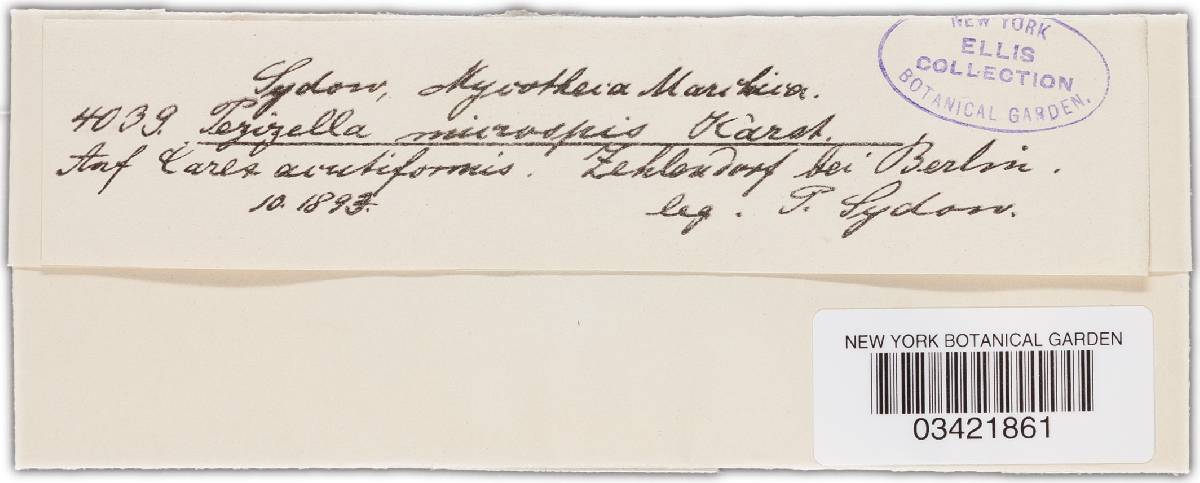 NEW YORK
ELLIS
COLLECTION
BOTANICAL GARDEN.
Sydow, Mycotheca Marchica.
4039. Pezizella microspis Karst.
Auf Carex acutiformis. Zehlendorf bei Berlin.
10. 1893. leg. P. Sydow.
NEW YORK BOTANICAL GARDEN
03421861